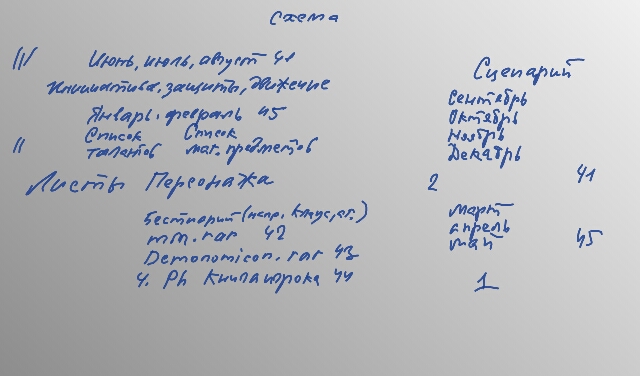 Схема
III Июнь, июль, август 41
Инициатива, защиты, движение
Январь, февраль 45
Список Список
II талантов маг. предметов
Листы Персонажа
Бестиарий (напр. Клаус, ат.)
mm.rar 42
Demonomicon.rar 43
4. Ph Книга игрока 44
Сценарий
Сентябрь
Октябрь
Ноябрь
Декабрь
2 41
март
апрель
май 45
1